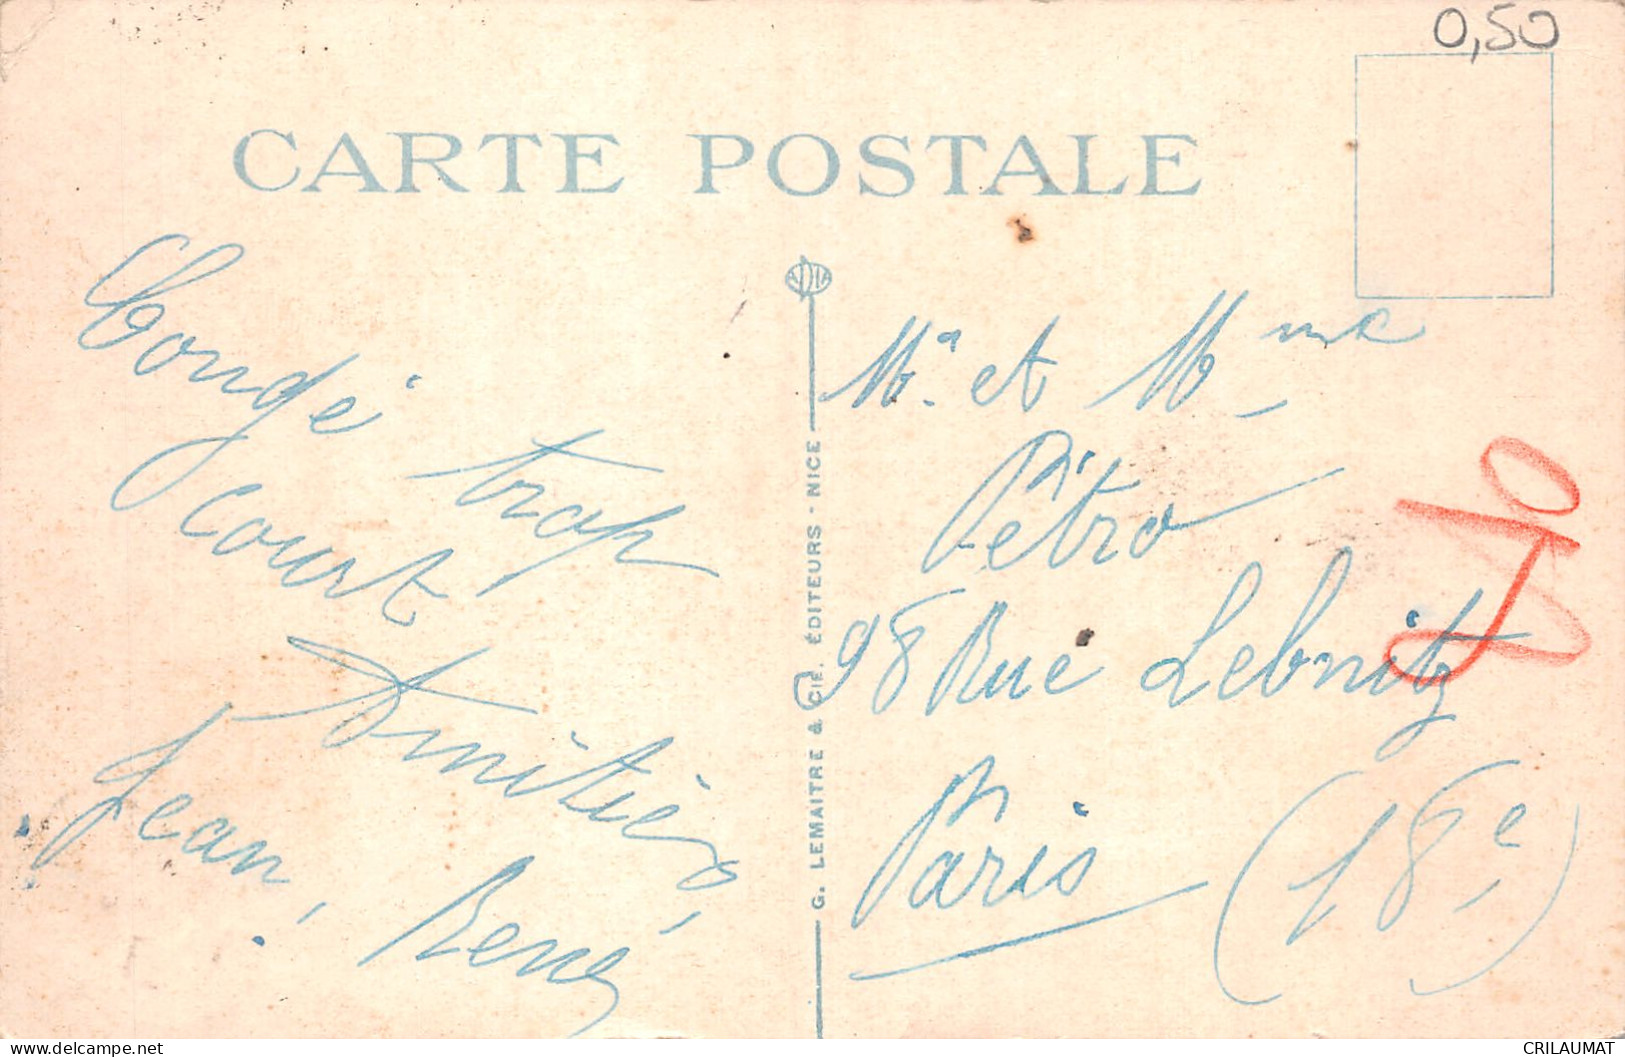 0,50
CARTE POSTALE
Congé
trop
court
Amitiés,
Jean, René
G. LEMAITRE & CIE. ÉDITEURS - NICE
Mr. et Mme
Pétro
98 Rue Lebnitz
Paris (18e)
delcampe.net
CRILAUMAT